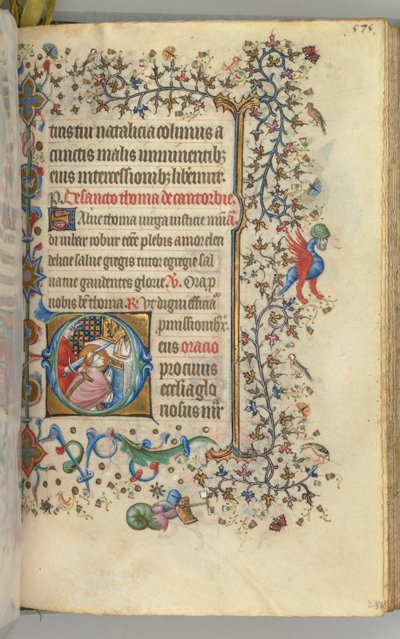 575
tius tui natalicia colimus a
cunctis malis iminentibꝫ
eius intercessionibꝫ liberemur.
P. De sancto thoma de cantorbie.
Salue thoma uirga iusticie mūdi
di iubar robur ecc̄e plebis amor cleri
delicie salue gregis tutor egregie sal
ua tue gaudentes glorie. V. Ora p
nobis bē thoma. R. Ut digni efficia
pmissionibꝫ
eus oracio
pro cuius
ecclīa glo
riosus